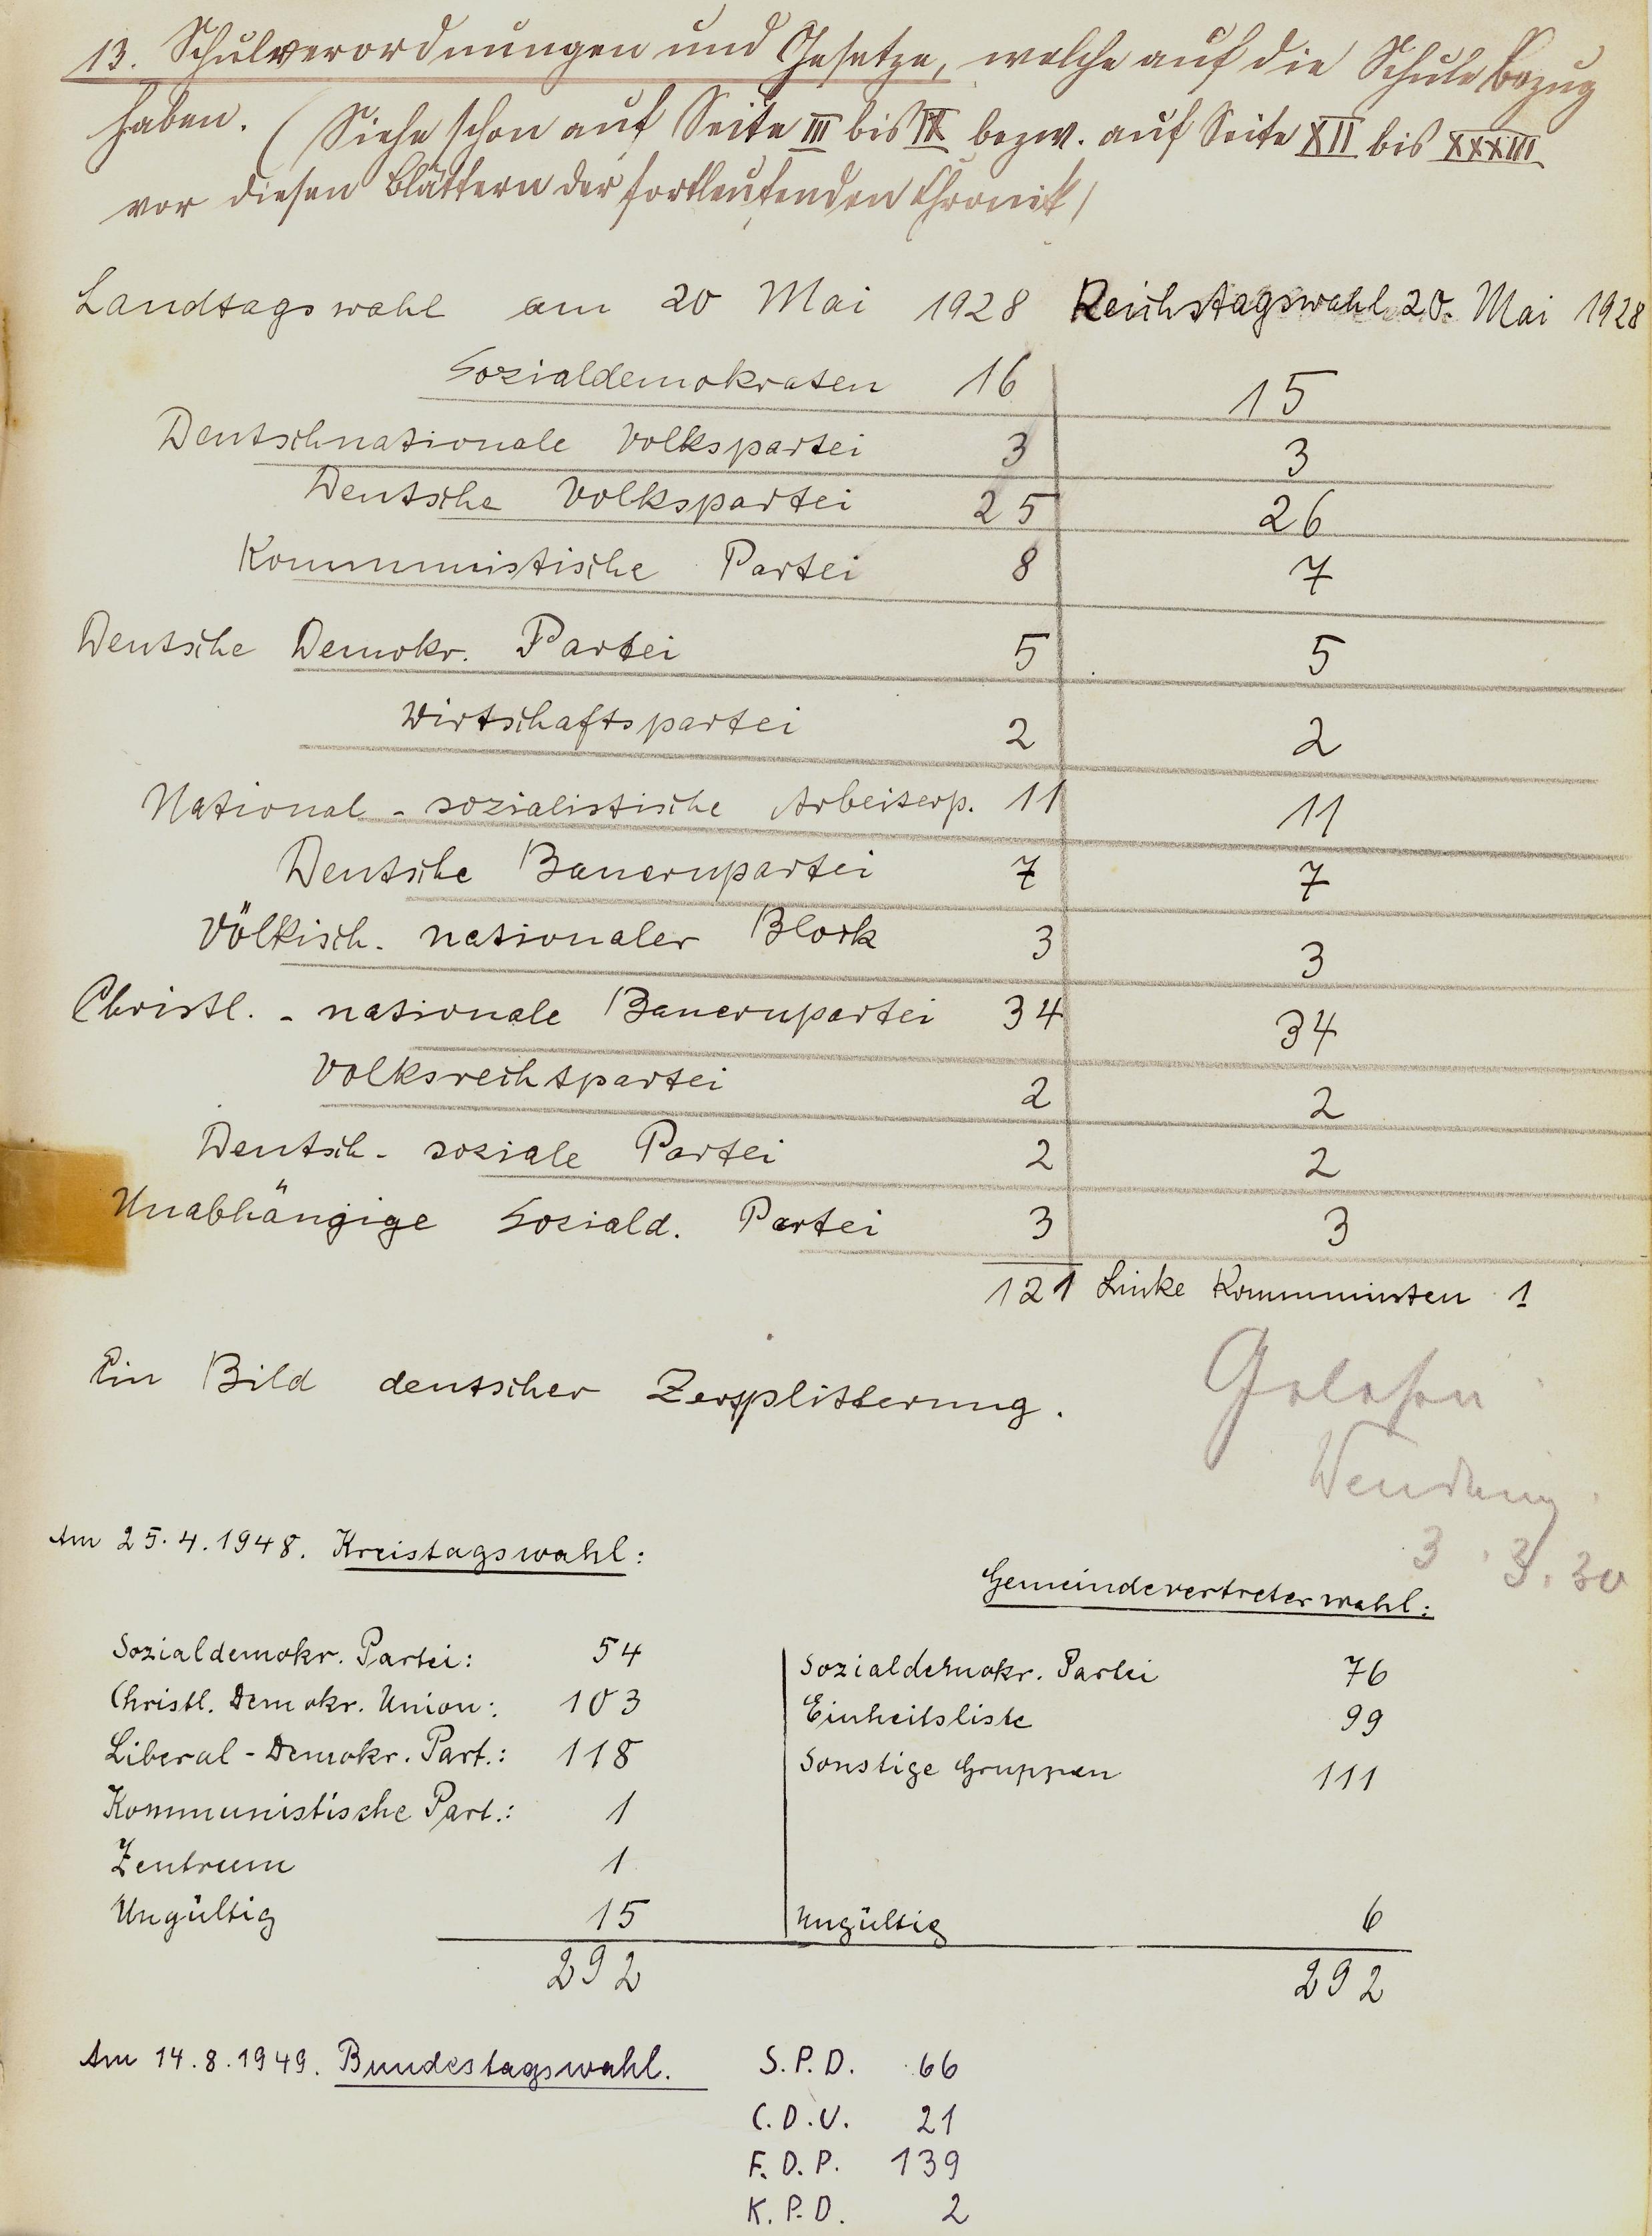 13. Schulverordnungen und Gesetze, welche auf die Schule Bezug
haben. (Siehe schon auf Seite III bis IX bezw. auf Seite XII bis XXXIII
vor diesen Blättern der fortlaufenden Chronik)
Landtagswahl am 20 Mai 1928 Reichstagswahl 20. Mai 1928
Sozialdemokraten 16 15
Deutschnationale Volkspartei 3 3
Deutsche Volkspartei 25 26
Kommunistische Partei 8 7
Deutsche Demokr. Partei 5 5
Wirtschaftspartei 2 2
National-sozialistische Arbeiterp. 11 11
Deutsche Bauernpartei 7 7
Völkisch-nationaler Block 3 3
Christl.-nationale Bauernpartei 34 34
Volksrechtspartei 2 2
Deutsch-soziale Partei 2 2
Unabhängige Soziald. Partei 3 3
121 Linke Kommunisten 1
Ein Bild deutscher Zersplitterung.
Gelesen
3.3.30
Am 25.4.1948. Kreistagswahl:
Sozialdemokr. Partei: 54
Christl. Demokr. Union: 103
Liberal-Demokr. Part.: 118
Kommunistische Part.: 1
Zentrum 1
Ungültig 15
292
Gemeindevertreterwahl:
Sozialdemokr. Partei 76
Einheitsliste 99
Sonstige Gruppen 111
Ungültig 6
292
Am 14.8.1949. Bundestagswahl. S.P.D. 66
C.D.U. 21
F.D.P. 139
K.P.D. 2